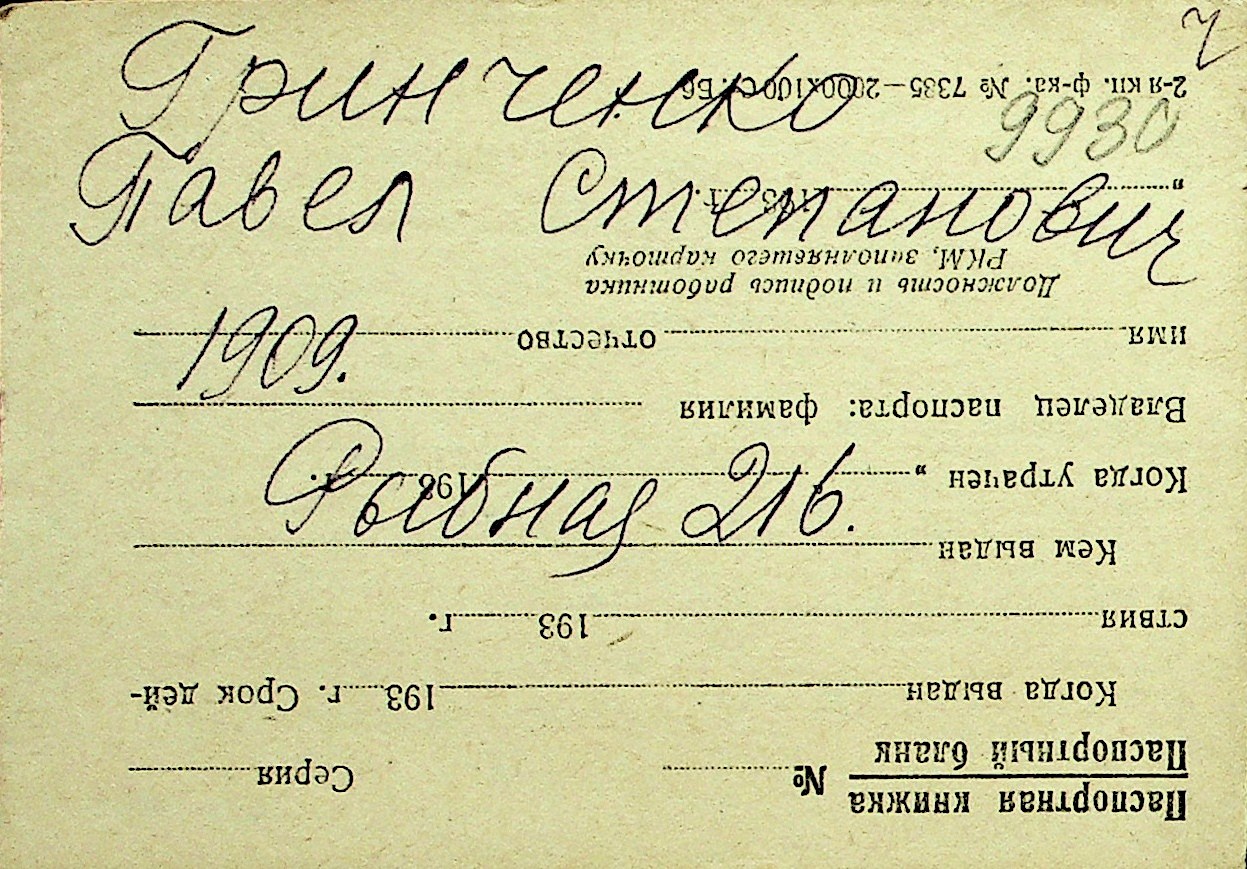 Гринченко
Павел Степанович
1909.
Рыбная 216.
9930
Паспортная книжка
Паспортный бланк
№ Серия
Когда выдан 193 г. Срок дей-
ствия 193 г.
Кем выдан
Когда утрачен „ “ 193 г.
Владелец паспорта: фамилия
имя отчество
Должность и подпись работника
РКМ, заполняевшего карточку
„ “ 193 г.
2-я кп. ф-ка. № 7335—2000×100